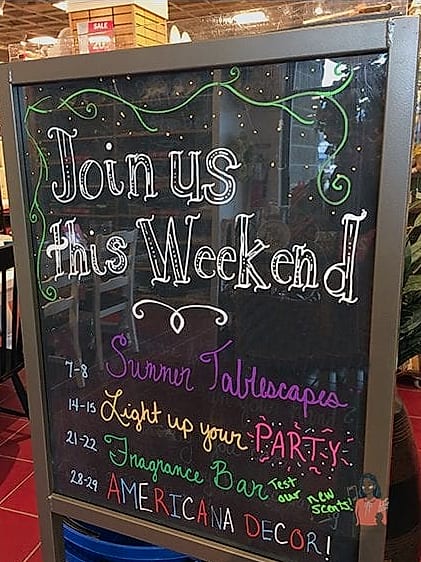 SALE
Join us
this Weekend
7-8 Summer Tablescapes
14-15 Light up your PARTY
21-22 Fragrance Bar Test our new scents!
28-29 AMERICANA DECOR!